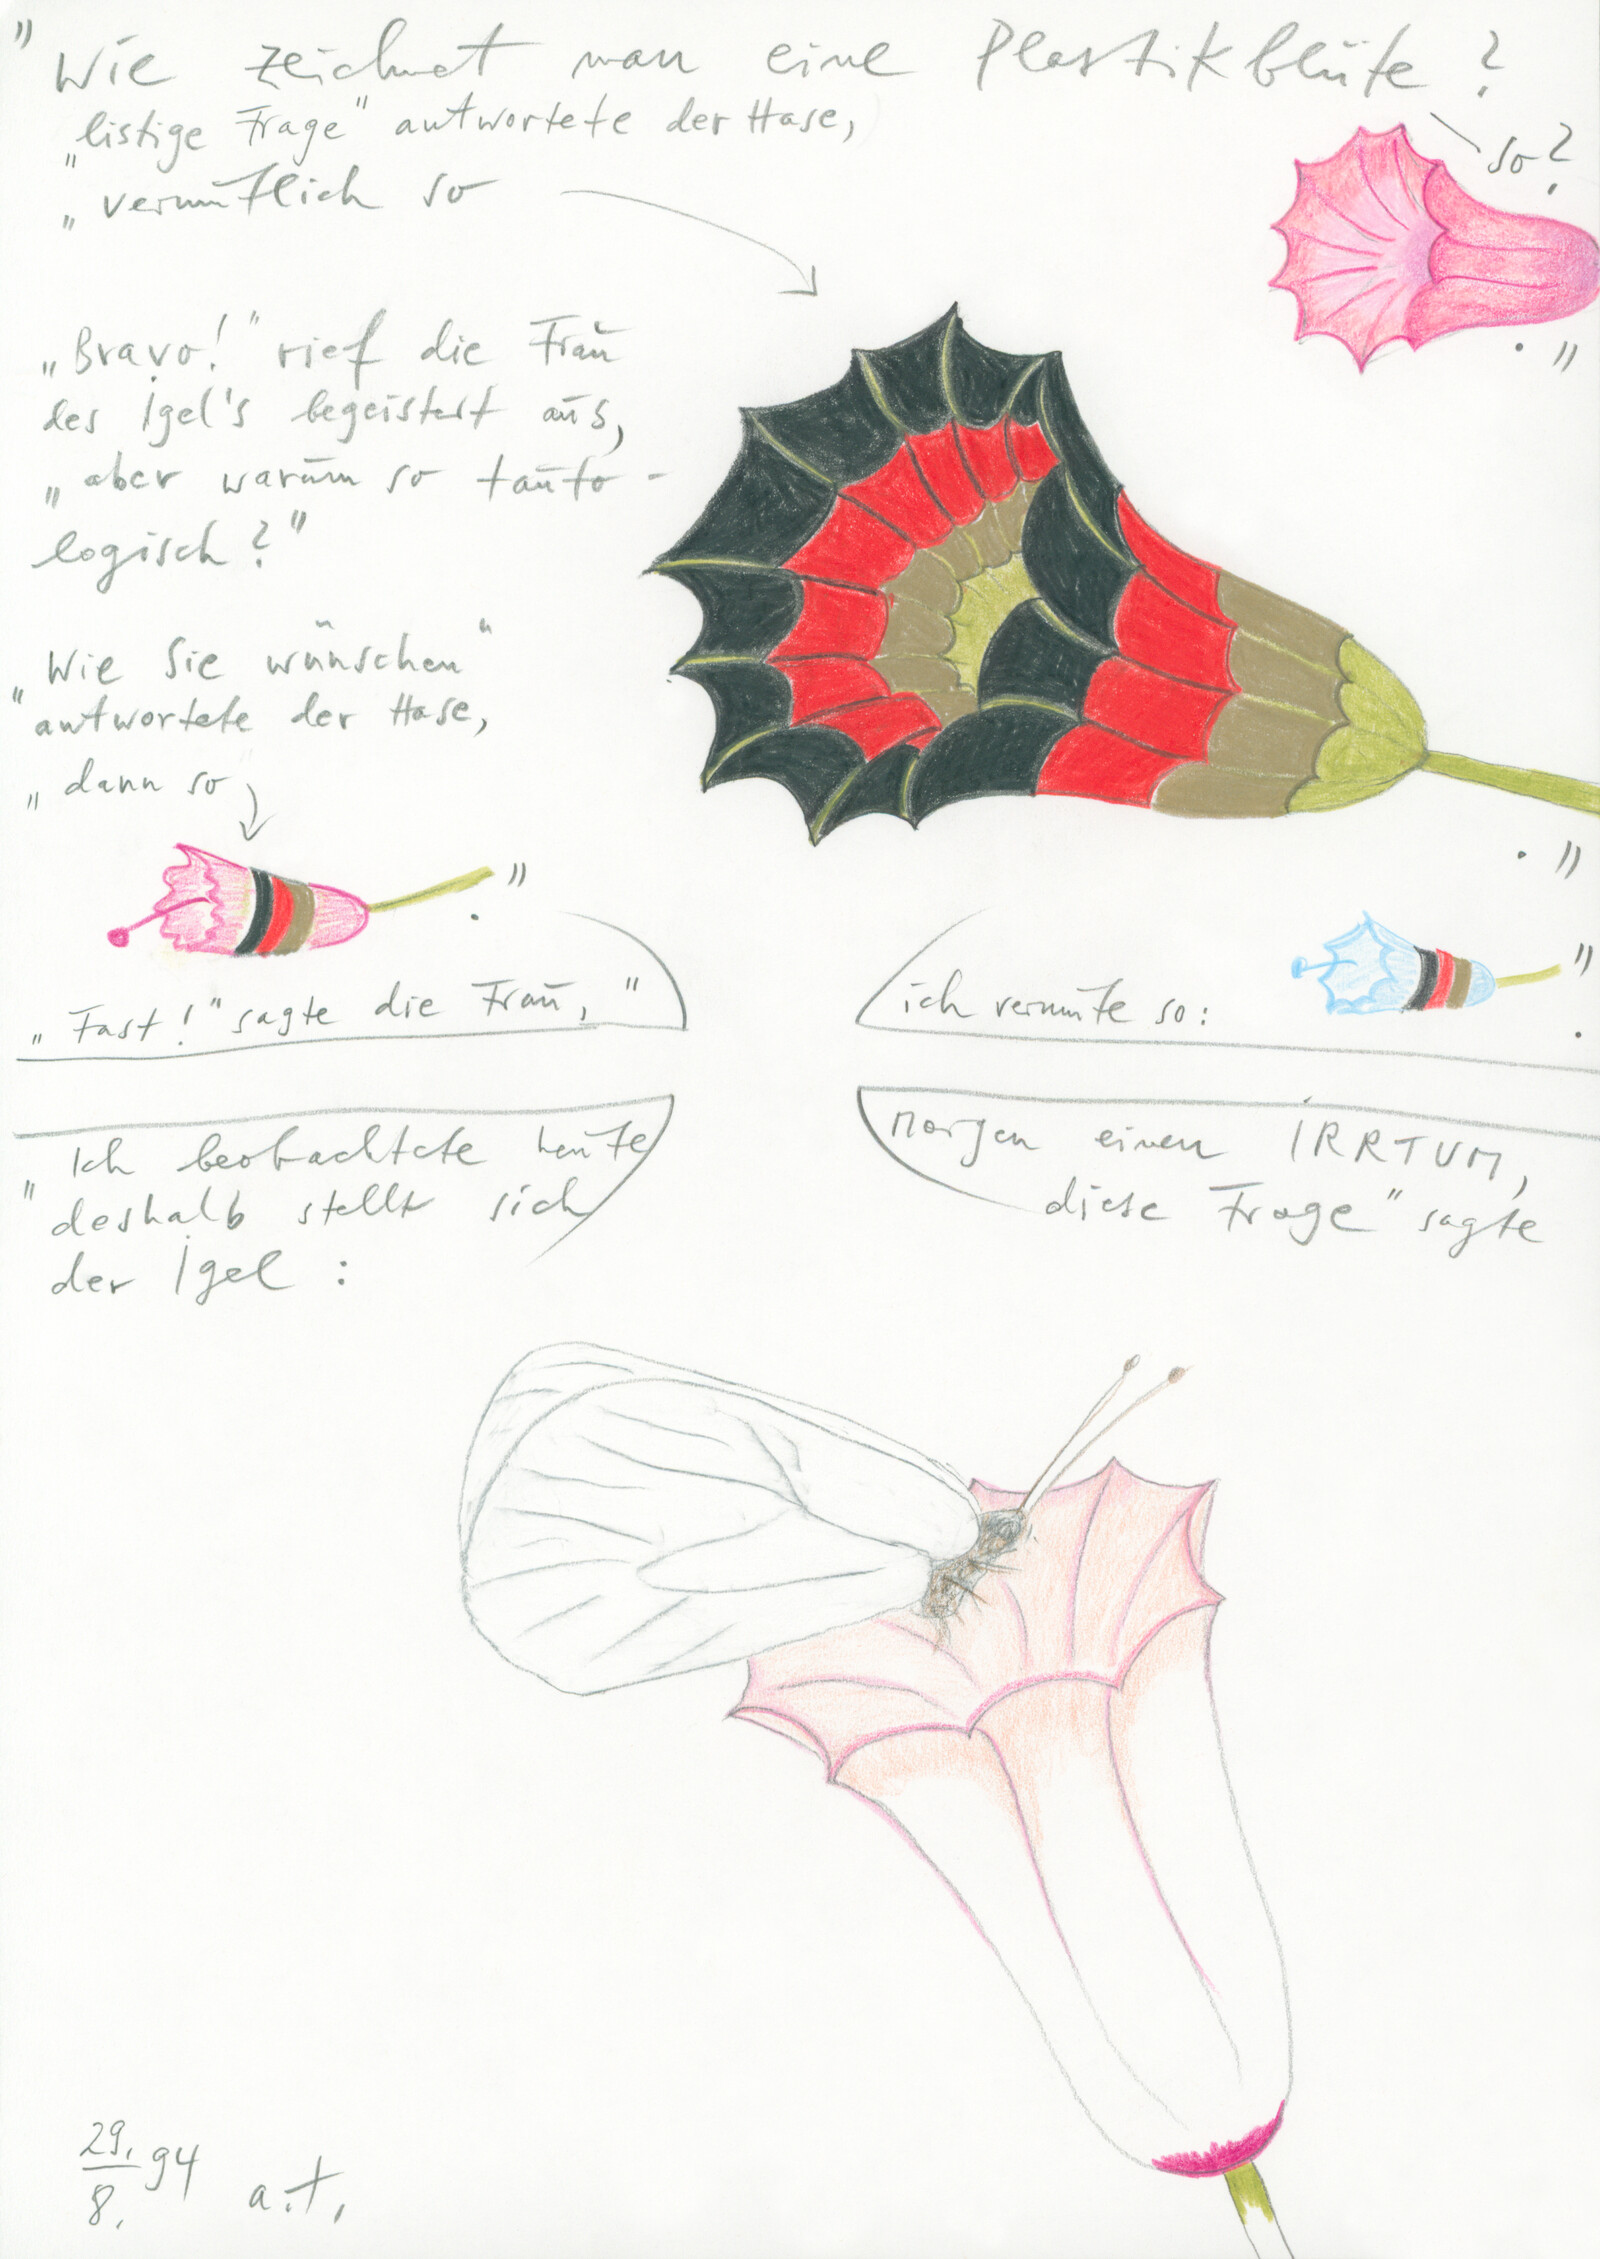 " Wie zeichnet man eine Plastikblüte ?
so ?
. "
„listige Frage" antwortete der Hase,
„vermutlich so
. "
„Bravo!" rief die Frau
des Igel's begeistert aus,
„aber warum so tauto-
logisch?"
„Wie Sie wünschen"
antwortete der Hase,
„dann so
" .
„Fast!" sagte die Frau, "
ich vermute so:
" .
„Ich beobachtete heute
morgen einen IRRTUM,
deshalb stellt sich
diese Frage" sagte
der Igel :
29./8. 94 a.t.